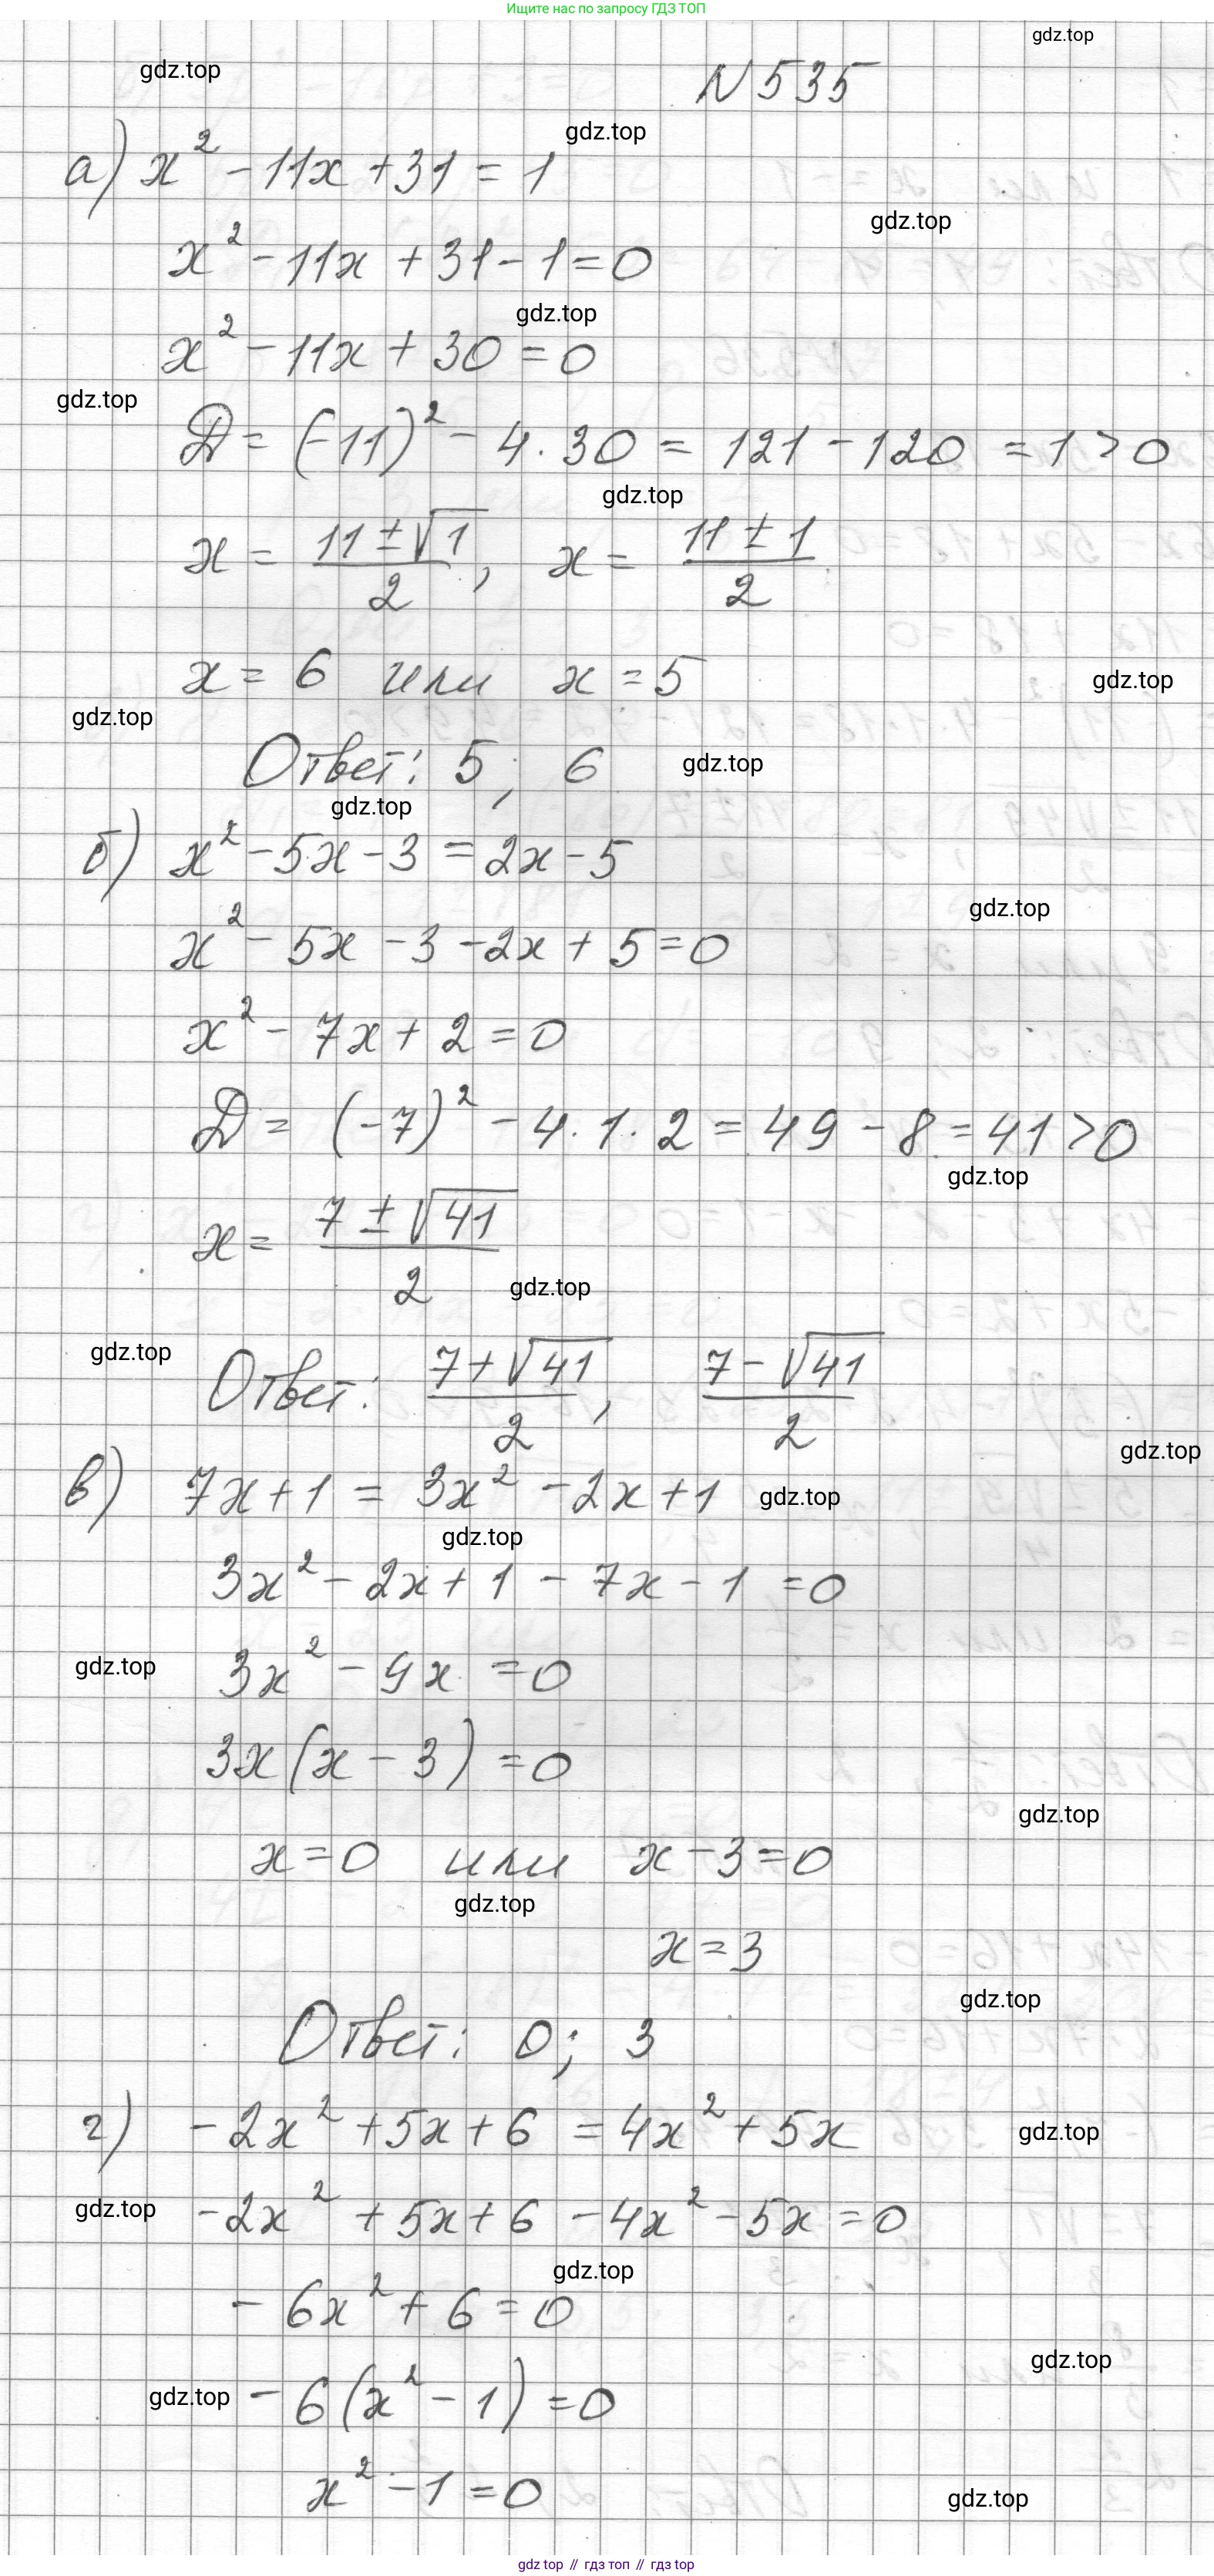 Ищите нас по запросу ГДЗ ТОП
gdz.top
gdz.top
N 535
gdz.top
а) x² - 11x + 31 = 1
gdz.top
x² - 11x + 31 - 1 = 0
gdz.top
x² - 11x + 30 = 0
gdz.top
D = (-11)² - 4 · 30 = 121 - 120 = 1 > 0
gdz.top
x = (11 ± √1)/2, x = (11 ± 1)/2
x = 6 или x = 5
gdz.top
gdz.top
Ответ: 5; 6
gdz.top
gdz.top
б) x² - 5x - 3 = 2x - 5
gdz.top
x² - 5x - 3 - 2x + 5 = 0
x² - 7x + 2 = 0
D = (-7)² - 4 · 1 · 2 = 49 - 8 = 41 > 0
gdz.top
x = (7 ± √41)/2
gdz.top
gdz.top
Ответ: (7 + √41)/2, (7 - √41)/2
gdz.top
в) 7x + 1 = 3x² - 2x + 1
gdz.top
gdz.top
3x² - 2x + 1 - 7x - 1 = 0
gdz.top
3x² - 9x = 0
3x(x - 3) = 0
gdz.top
x = 0 или x - 3 = 0
gdz.top
x = 3
gdz.top
Ответ: 0; 3
г) -2x² + 5x + 6 = 4x² + 5x
gdz.top
gdz.top
-2x² + 5x + 6 - 4x² - 5x = 0
gdz.top
-6x² + 6 = 0
gdz.top
gdz.top
-6(x² - 1) = 0
x² - 1 = 0
gdz.top
gdz top // гдз топ // гдз top